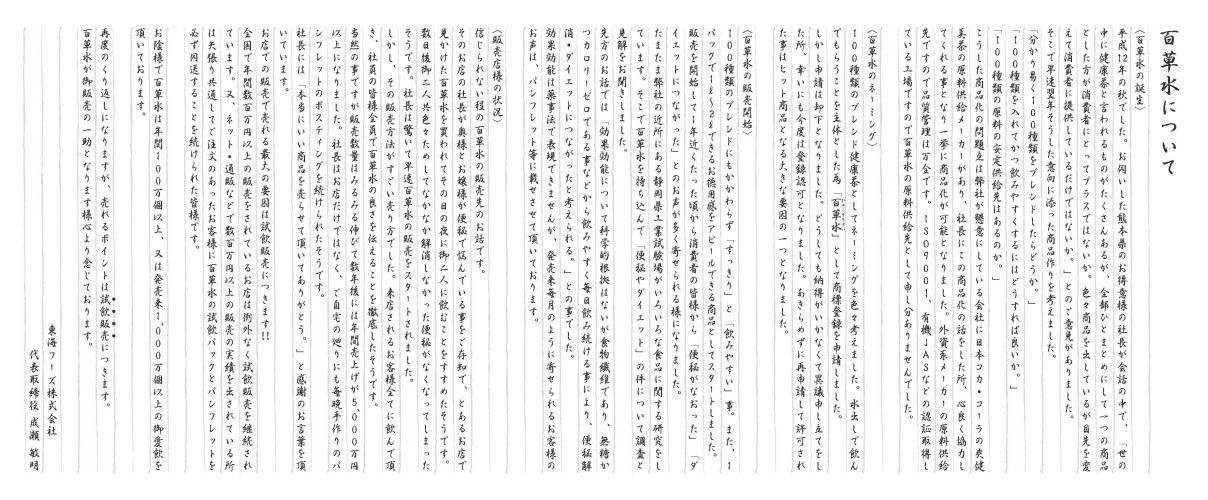 百草水について
〈百草水の誕生〉
平成12年の秋でした。お伺いした熊本県のお得意様の社長が会話の中で、「世の
中に健康茶と言われるものがたくさんあるが、全部ひとまとめにして一つの商品
とした方が消費者にとってプラスではないか。色々商品を出しているが目先を変
えて消費者に提供しているだけではないか。」とのご意見がありました。
そこで早速翌年そうした意向に添った商品作りを考えました。
「分かり易く100種類をブレンドしたらどうか。」
「100種類を入れてかつ飲みやすくするにはどうすれば良いか。」
「100種類の原料の安定供給先はあるのか。」
こうした商品化の問題点は弊社が懇意にしている会社に日本コカ・コーラの爽健
美茶の原料供給メーカーがあり、社長にこの商品化の話をした所、心良く協力し
てくれる事となり一挙に商品化が可能となりました。外資系メーカーの原料供給
先ですので品質管理は万全です。ISO9001、有機JASなどの認証取得し
ている工場ですので百草水の原料供給先として申し分ありませんでした。
〈百草水のネーミング〉
100種類のブレンド健康茶としてネーミングを色々考えました。水出しで飲ん
でもらうことを主体とした為「百草水」として商標登録を申請しました。
しかし申請は却下となりました。どうしても納得がいかなくて異議申し立てをし
た所、幸いにも今度は登録認可となりました。あきらめずに再申請して許可され
た事はヒット商品となる大きな要因の一つとなりました。
〈百草水の販売開始〉
100種類のブレンドにもかかわらず「すっきり」と「飲みやすい」事。また、1
パックで1ℓ～2ℓできるお徳用感をアピールできる商品としてスタートしました。
販売を開始して1年近くたった頃から消費者の皆様から「便秘がなおった」「ダ
イエットにつながった」とのお声が多く寄せられる様になりました。
たまたま弊社の近所にある静岡県工業試験場がいろいろな食品に関する研究をし
ています。そこで百草水を持ち込んで「便秘やダイエット」の件について調査と
見解をお聞きしました。
先方のお話では「効果効能について科学的根拠はないが食物繊維であり、無糖か
つカロリーゼロである事などから飲みやすく毎日飲み続ける事により、便秘解
消・ダイエットにつながったと考えられる。」との事でした。
効果効能は薬事法で表現できませんが、発売来毎月のように寄せられるお客様の
お声は、パンフレット等に載せさせて頂いております。
〈販売店様の状況〉
信じられない程の百草水の販売先のお話です。
そのお店の社長が奥様とお嬢様が便秘で悩んでいる事をご存知で、とあるお店で
見かけた百草水を買われてその日の夜に御二人に飲むことをすすめたそうです。
数日後御二人共色々ためしてなかなか解消しなかった便秘がなくなってしまった
そうです。社長は驚いて早速百草水の販売をスタートされました。
しかし、その販売方法がすごい売り方でした。来店されるお客様全てに飲んで頂
き、社員の皆様全員で百草水の良さを伝えることを徹底したそうです。
当然の事ですが販売数量はみるみる伸びて数年後には年間売上げが5,000万円
以上になりました。社長はお店だけではなく、ご自宅の廻りにも毎晩手作りのパ
ンフレットのポスティングを続けられたそうです。
社長には「本当にいい商品を売らせて頂いてありがとう。」と感謝のお言葉を頂
いています。
お店での販売で売れる最大の要因は試飲販売につきます!!
全国で年間数百万円以上の販売をされているお店は例外なく試飲販売を継続され
ています。又、ネット・通販などで数百万円以上の販売の実績を出されている所
は夫張り共通してご注文のあったお客様に百草水の試飲パックとパンフレットを
必ず同送することを続けられた皆様です。
お陰様で百草水は年間100万個以上、又は発売来1,000万個以上の御愛飲を
頂いております。
再度のくり返しになりますが、売れるポイントは試飲販売につきます。
百草水が御販売の一助となります様心より念じております。
東海フーズ株式会社
代表取締役 成瀬 敏明